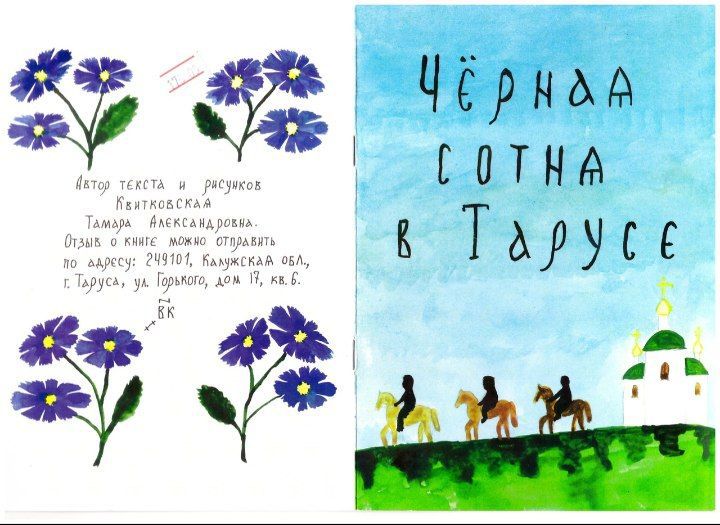 Автор текста и рисунков
Квитковскаѧ
Тамара Александровна.
Отзыв о книге можно отправить
по адресу: 249101, Калужскаѧ обл.,
г. Таруса, ул. Горького, дом 17, кв. 6.
ВК
Чёрнаѧ
сотнѧ
в Тарусе